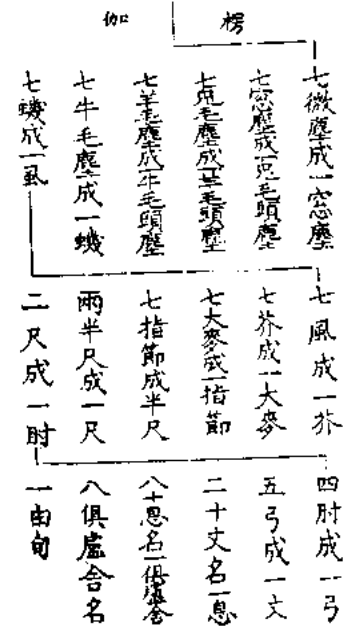 楞伽
七微塵成一窓塵
七窓塵成一兎毛頭塵
七兎毛塵成一羊毛頭塵
七羊毛塵成一牛毛頭塵
七牛毛塵成一蟣
七蟣成一虱
七風成一芥
七芥成一大麥
七大麥成一指節
七指節成半尺
兩半尺成一尺
二尺成一肘
四肘成一弓
五弓成一丈
二十丈名一息
八十息名一俱盧舍
八俱盧舍名
一由旬